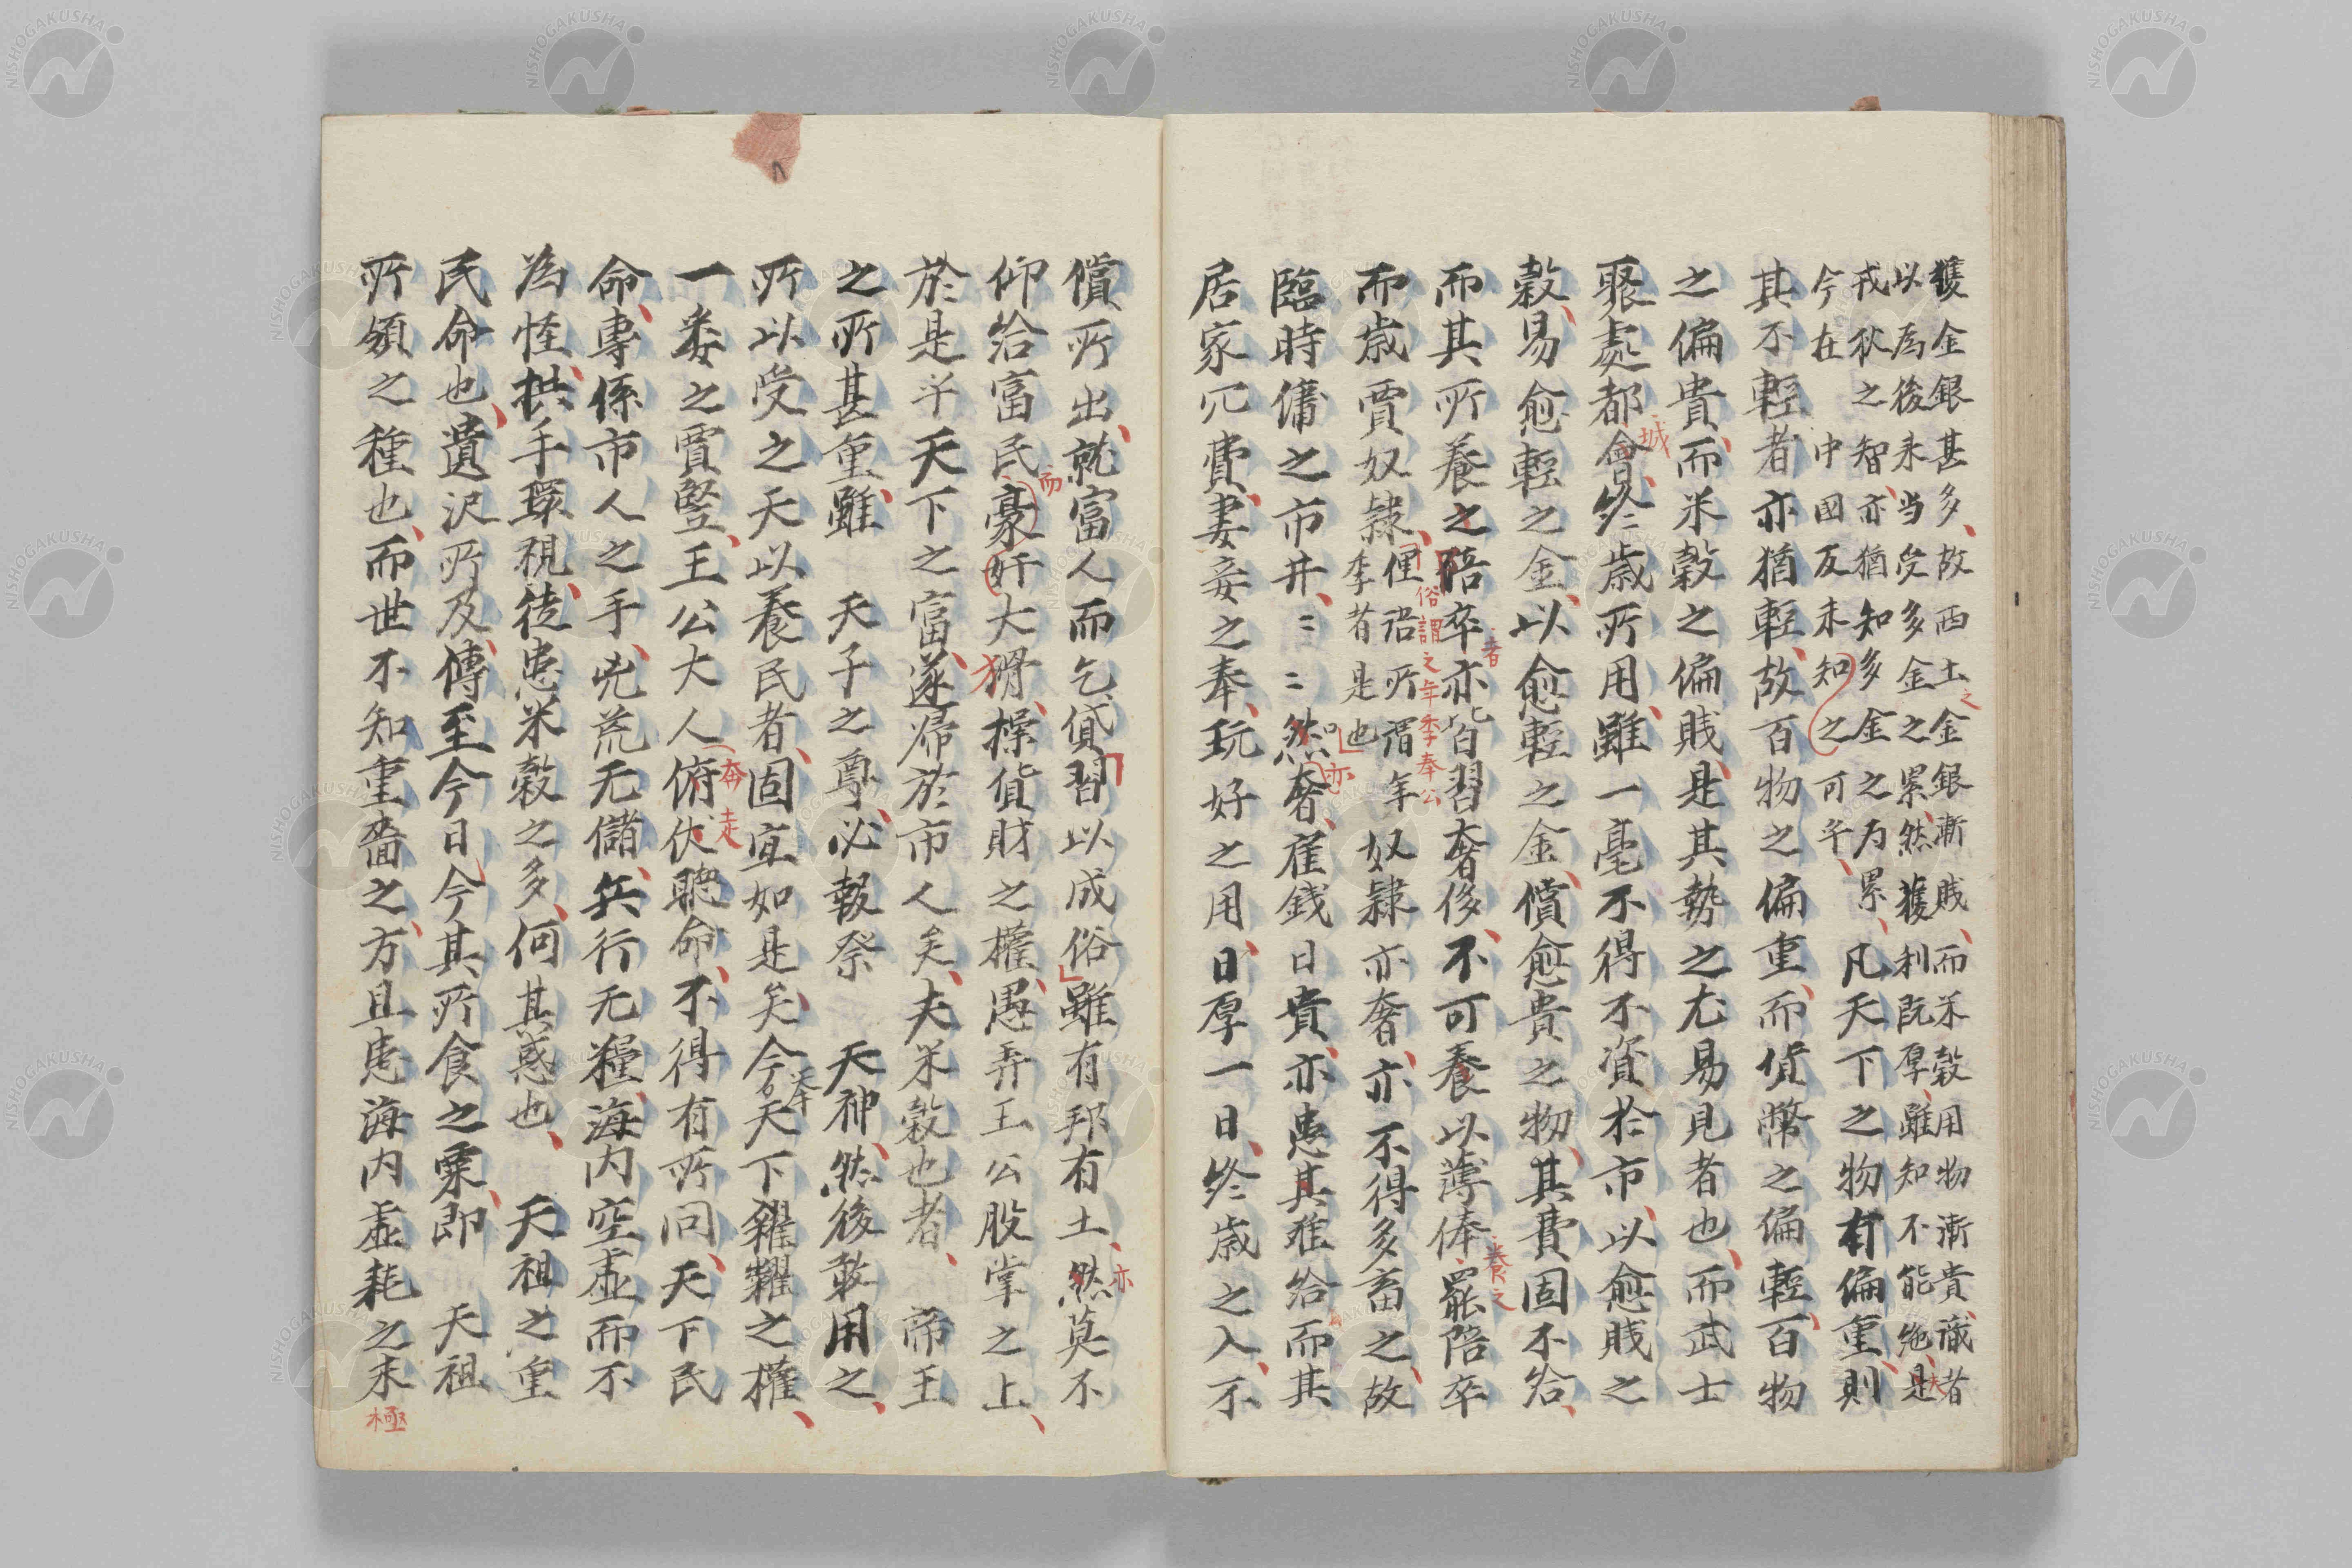 獲金銀甚多故西土金銀漸賤而米穀用物漸貴識者
以為後永当受多金之累然獲利既厚雖知不能絶是
戎狄之智亦猶知多金之为累
今在 中國反未知之可乎
凡天下之物有偏重則
其不輕者亦猶輕故百物之偏重而貨幣之偏輕百物
之偏貴而米穀之偏賤是其勢之尤易見者也而武士
聚處都會終歳所用雖一毫不得不資於市以愈賤之
穀易愈輕之金以愈輕之金償愈貴之物其費固不給
而其所養之陪卒亦皆習奢侈不可養以薄俸罷陪卒
而歳賈奴隷
俚語所謂年
季者是也
奴隷亦奢亦不得多畜之故
臨時傭之市井〻〻〻然奢雇銭日貴亦患其難給而其
居家冗費妻妾之奉玩好之用日厚一日終歳之入不
償所出就富人而乞貸習以成俗雖有邦有土然莫不
仰給富民豪奸大猾操貨財之權愚弄王公股掌之上
於是乎天下之富遂帰於市人矣夫米穀也者 帝王
之所甚重雖 天子之尊必報祭 天神然後敢用之
所以受之天以養民者固宜如是矣今天下糴糶之權
一委之賈豎王公大人俯伏聽命不得有所问天下民
命專係市人之手兇荒无儲兵行无糧海内空虚而不
為怪拱手環視徒患米穀之多何其惑也 天祖之重
民命也遺沢所及傳至今日今其所食之粟即 天祖
所頒之種也而世不知重嗇之方且患海内虚耗之末
之
城
者
養之
俗謂之年季奉公
亦
亦
而
奔走
極